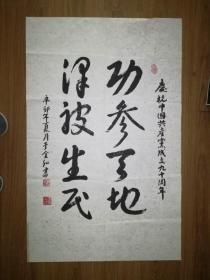 慶祝中國共產黨成立九十周年
功參天地
澤被生民
辛卯年夏月于金和書